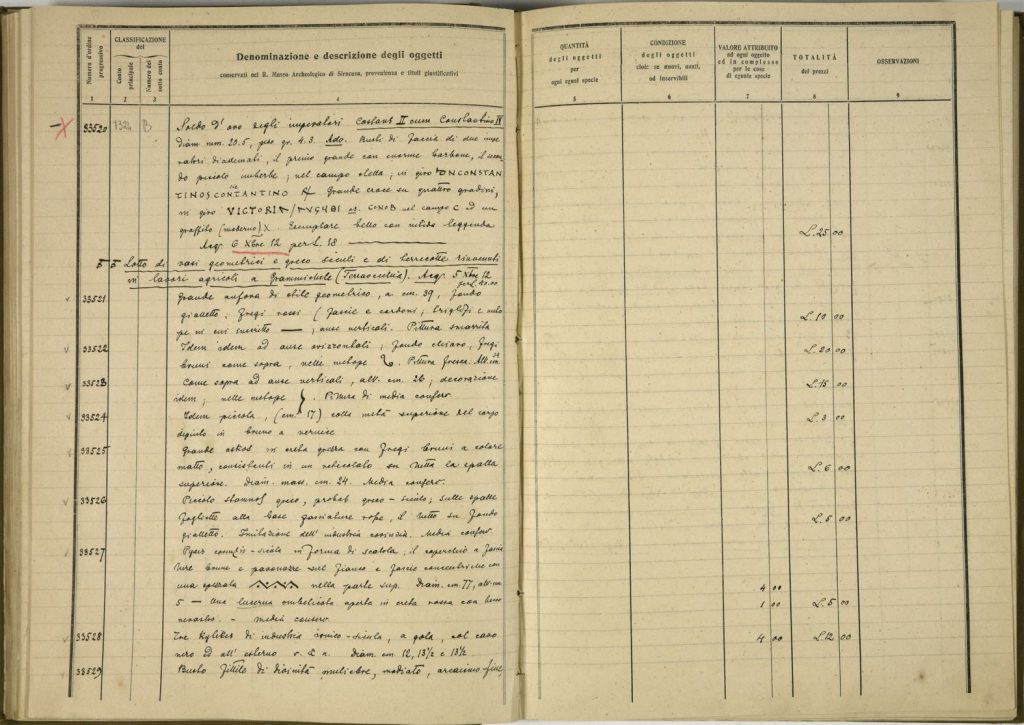 Numero d'ordine progressivo
CLASSIFICAZIONE del
Conto principale
Numero del sotto conto
Denominazione e descrizione degli oggetti
conservati nel R. Museo Archeologico di Siracusa, provenienza e titoli giustificativi
QUANTITÀ degli oggetti per ogni eguale specie
CONDIZIONE degli oggetti cioè: se nuovi, usati, od inservibili
VALORE ATTRIBUITO ad ogni oggetto ed in complesso per le cose di eguale specie
TOTALITÀ dei prezzi
OSSERVAZIONI
1 2 3 4 5 6 7 8 9
X 33520 B Soldo d'oro degli imperatori Costans II cum Constantino IV
diam. mm. 20.5, peso gr. 4.3. Busti di faccia di due impe
ratori diademati, il primo grande con enorme barbone, il secon
do piccolo imberbe; nel campo stella; in giro
TINOSCONTANTINO Grande croce su quattro gradini,
in giro VICTORIA / CONOB nel campo C ed un
graffito (moderno) X. Esemplare bello con nitida leggenda L. 25 00
Acq. 6 Xbre 12 per L. 18
Lotto di vasi geometrici e greco siculi e di terrecotte rinvenuti
in lavori agricoli a Grammichele (Terravecchia). Acq. 5 Xbre 12
33521 Grande anfora di stile geometrico, a. cm. 39, fondo
gialletto. Fregi rossi (fascie e cordoni; triglifi e meto
pe in cui inscritto ; anse verticali. Pittura smarrita L. 10 00
33522 Idem idem ad anse orizzontali; fondo chiaro, fregi
bruni come sopra, nelle metope . Pittura fresca. Alt. cm. L. 20 00
33523 Come sopra ad anse verticali, alt. cm. 26; decorazione
idem; nelle metope . Pittura di media conserv. L. 15 00
33524 Idem piccola, (cm. 17) colla metà superiore del corpo
dipinto in bruno a vernice L. 3 00
33525 Grande askos in creta grezza con fregi bruni a colore
matto, consistenti in un reticolato su tutta la spalla
superiore. Diam. mass. cm. 24. Media conserv. L. 6 00
33526 Piccolo stamnos greco, probab. greco-siculo; sulle spalle
foglietto alla base fasciature rosse, il tutto su fondo
gialletto. Imitazione dell'industria corinzia. Media conserv. L. 5 00
33527 Pyxis -sicula in forma di scatola, il coperchio a fascia
ture brune e paonazze sul fianco e fascie concentriche con
una nella parte sup. Diam. cm. 77, alt. cm 4 00
5 — Una lucerna ombelicata aperta in creta rossa con 1 00 L. 5 00
nerastro. - media conserv.
33528 Tre Kylikes di industria ionico-sicula, a gola, col cavo 4 00 L. 12 00
nero ed all'esterno r. & n. Diam. cm. 12, 13½ e 13½
33529 Busto fittile di divinità muliebre, modiato, arcaismo fine,